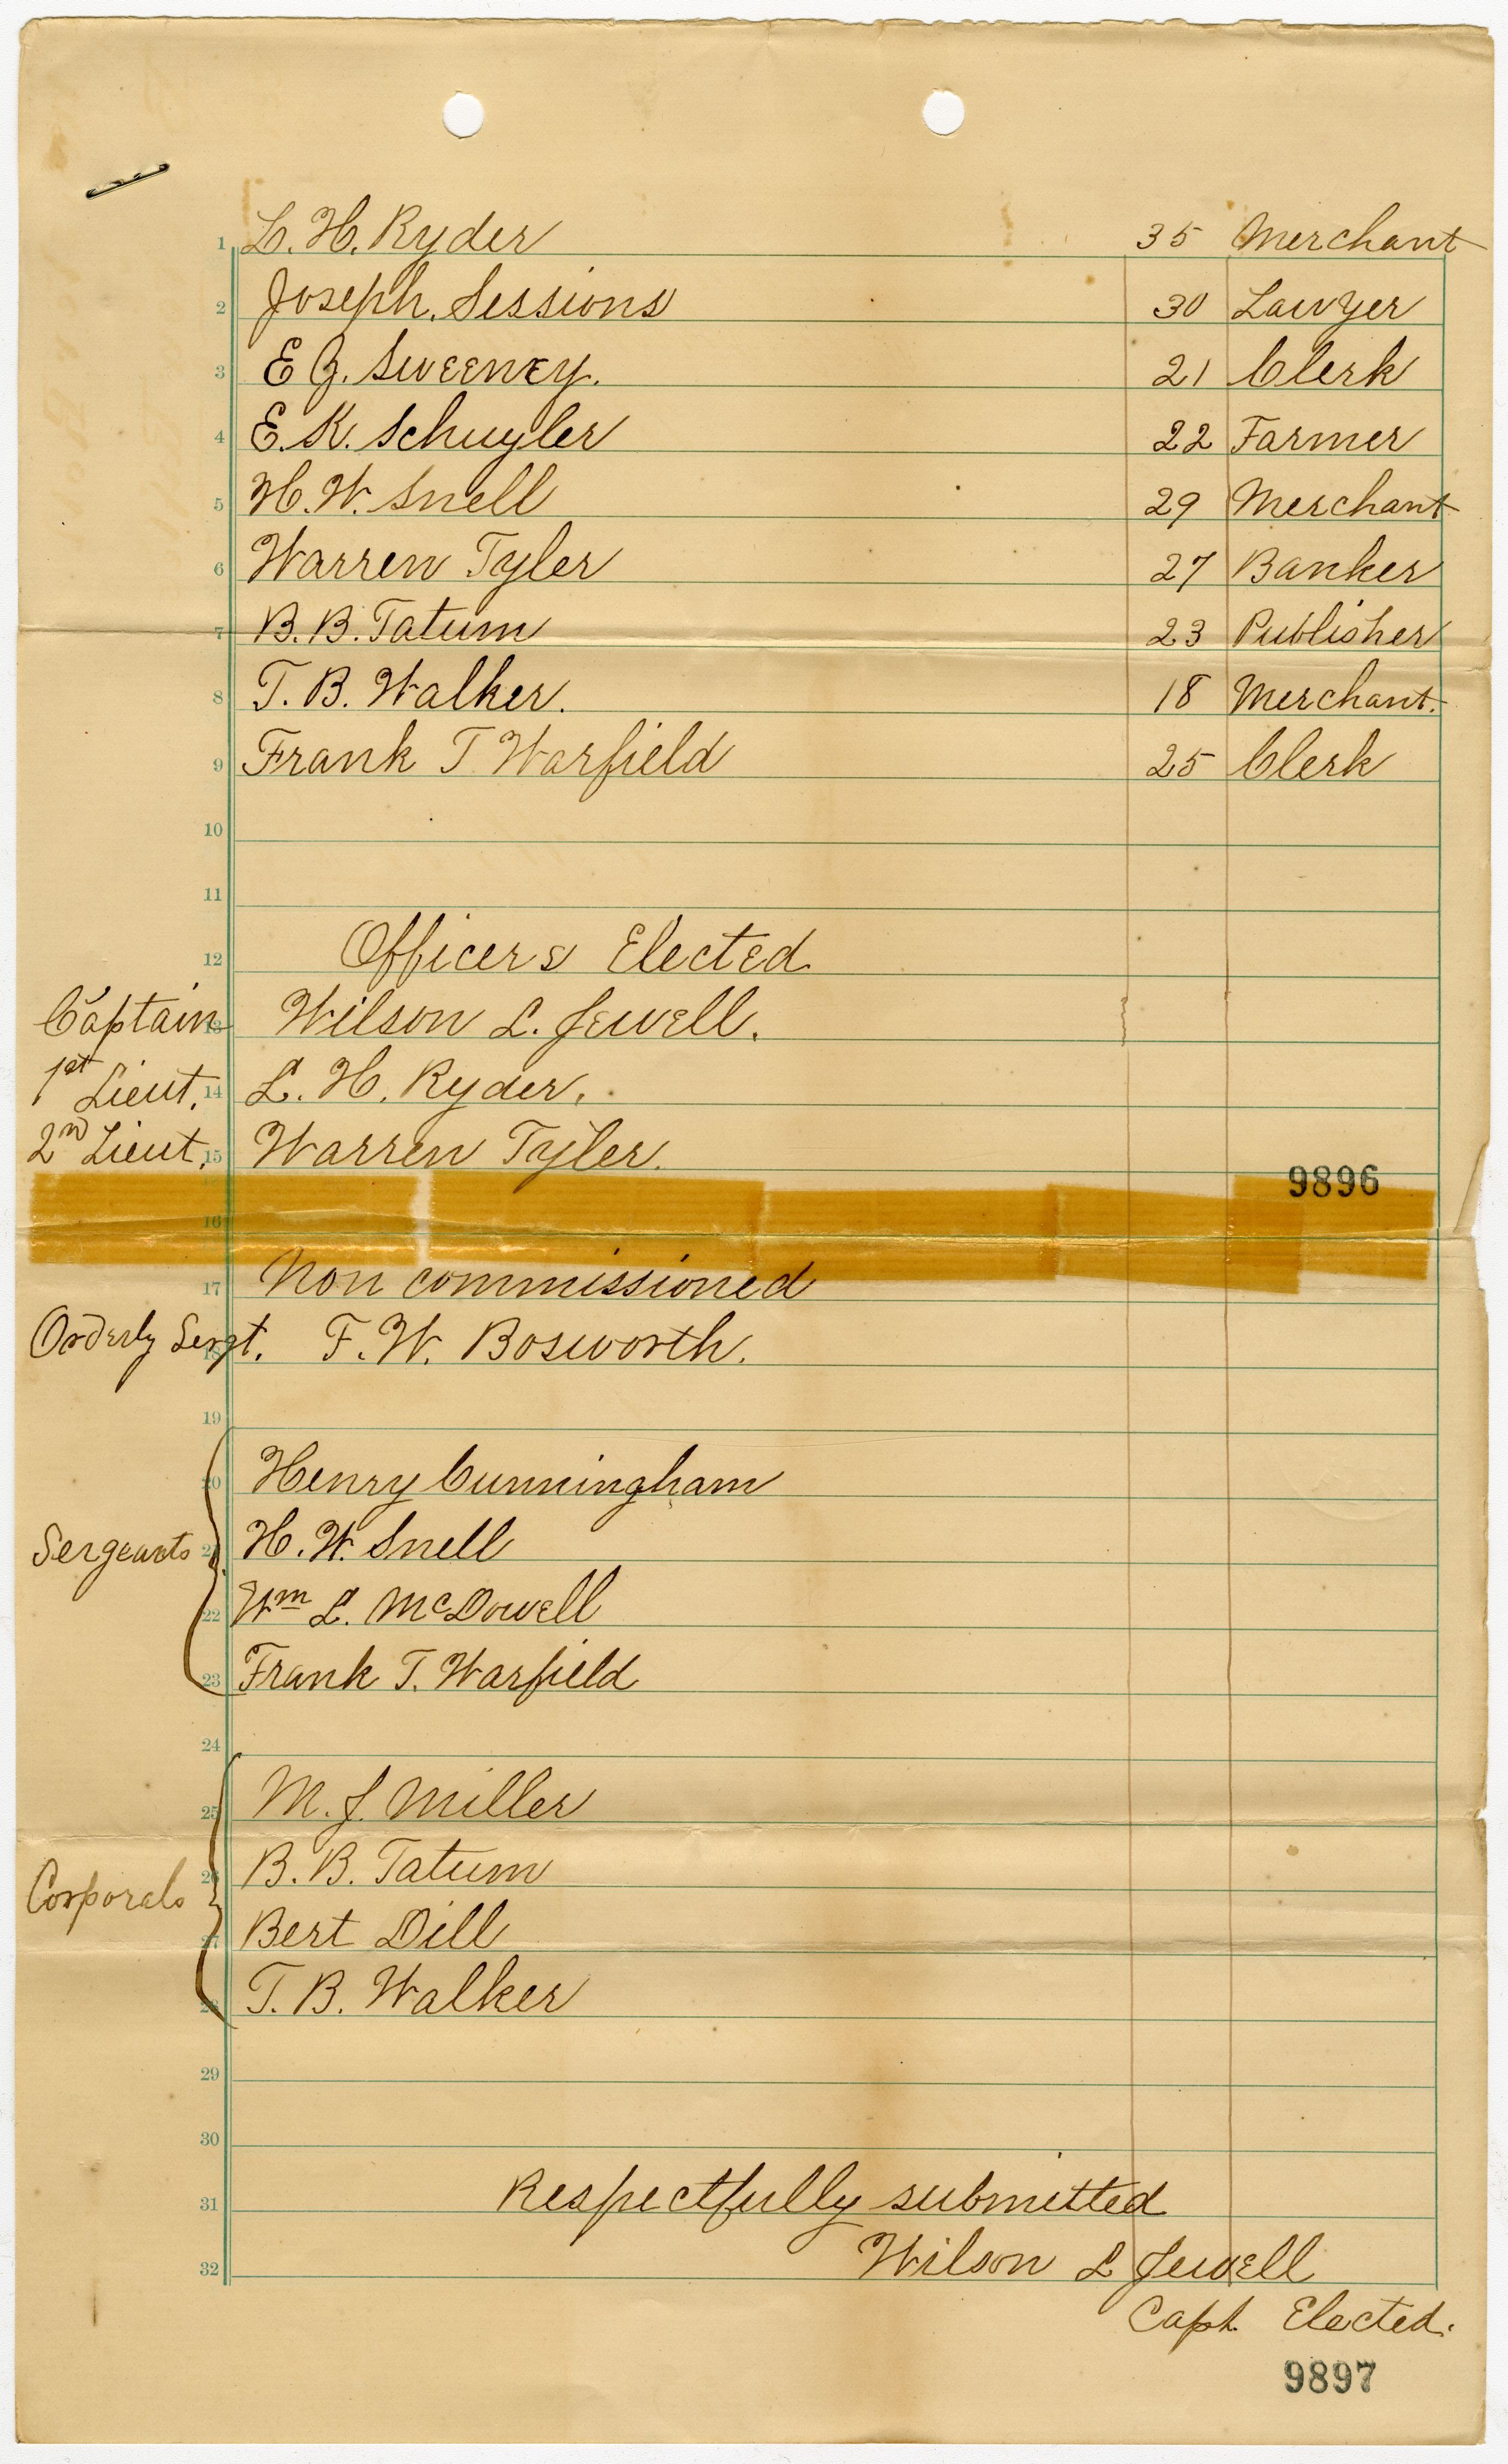 1 L. H. Ryder 35 Merchant
2 Joseph. Sessions 30 Lawyer
3 E G. Sweeney. 21 Clerk
4 E. K. Schuyler 22 Farmer
5 H. W. Snell 29 Merchant
6 Warren Tyler 27 Banker
7 B. B. Tatum 23 Publisher
8 T. B. Walker. 18 Merchant.
9 Frank T Warfield 25 Clerk
10
11
12 Officers Elected
Captain 13 Wilson L. Jewell.
1st Lieut. 14 L. H. Ryder.
2nd Lieut. 15 Warren Tyler.
9896
16
17 Non commissioned
Orderly Sergt. 18 F. W. Bosworth.
19
20 Henry Cunningham
Sergeants 21 H. W. Snell
22 Wm L. McDowell
23 Frank T. Warfield
24
25 M. J. Miller
26 B. B. Tatum
Corporals 27 Bert Dill
28 T. B. Walker
29
30
31 Respectfully submitted
32 Wilson L Jewell
Capt. Elected.
9897